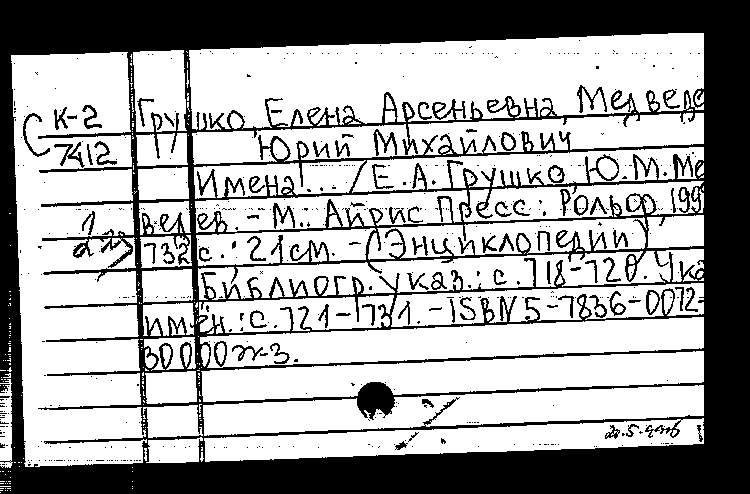 К-2 Грушко, Елена Арсеньевна, Медведе
7412 Юрий Михайлович
Имена!... / Е.А. Грушко, Ю.М. Ме
ведев. - М.: Айрис Пресс: Рольф, 199
732 с.: 21 см. - (Энциклопедии)
Библиогр. указ.: с. 718-720. Ука
имён.: с. 721-731. - ISBN 5-7836-0072-
30000 экз.